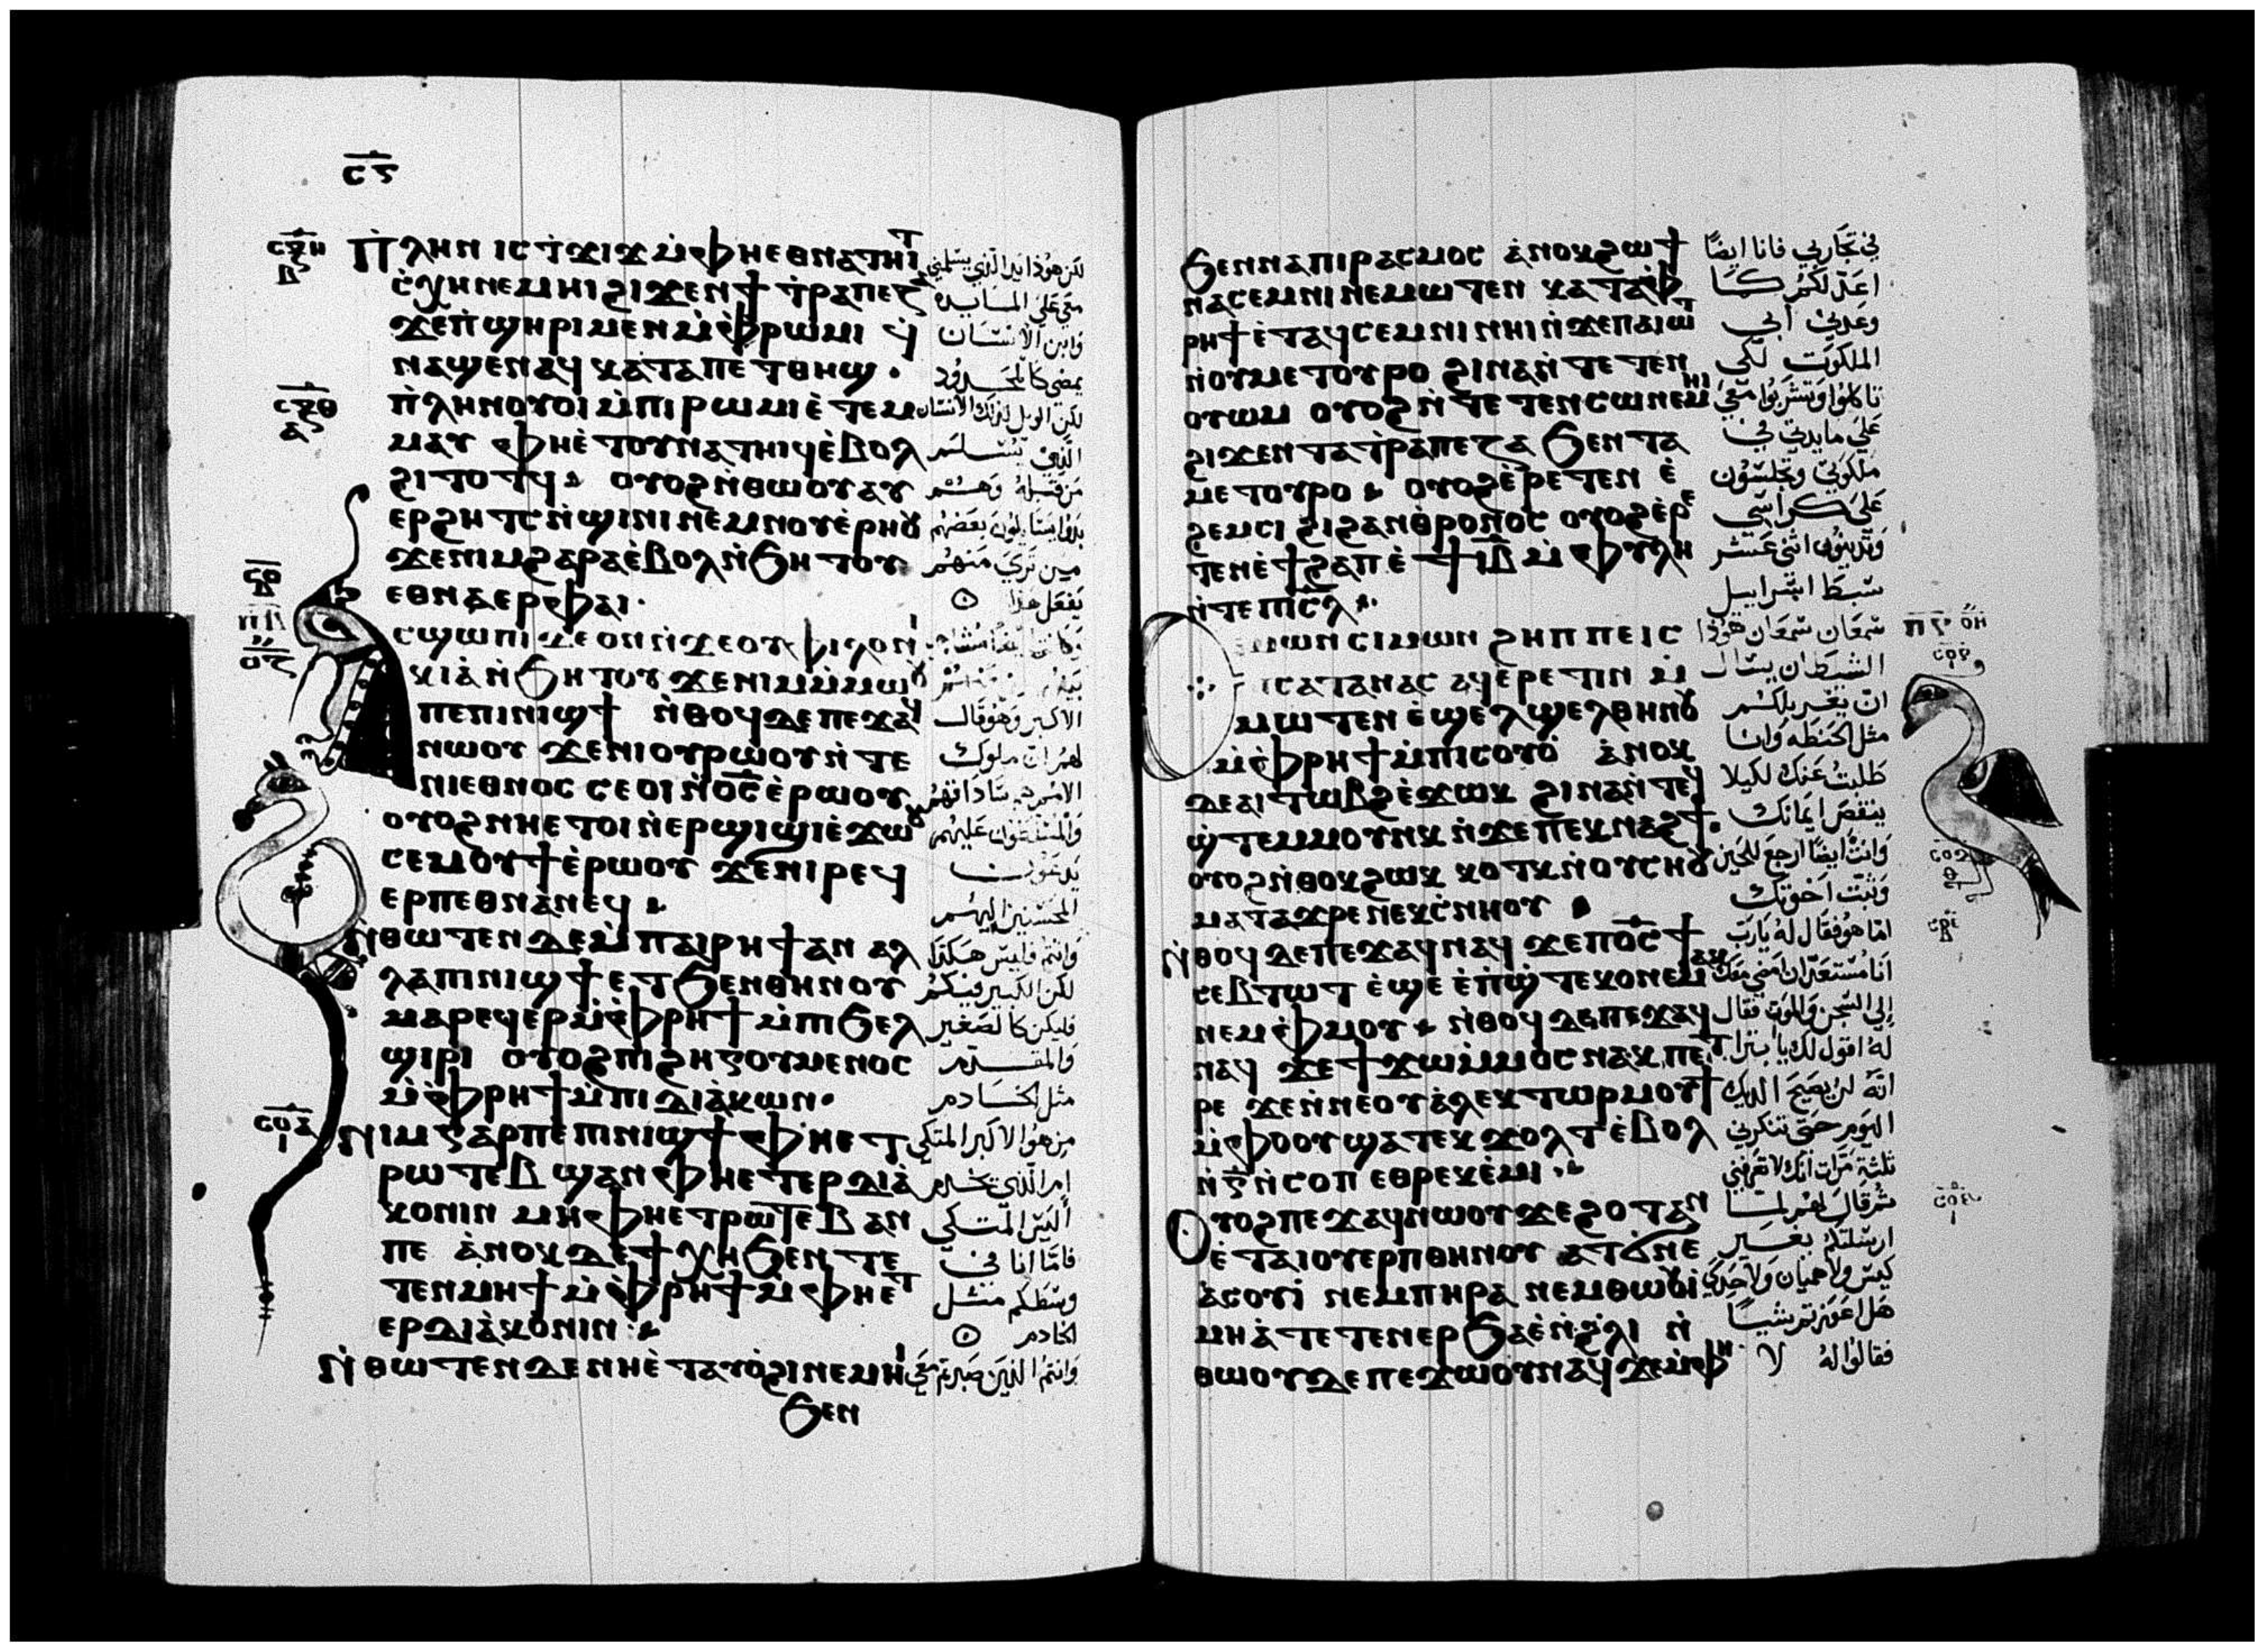 ⲥ̅ⲋ̅
Ⲡ̀ⲗⲏⲛ ⲓⲥ ⲧ̀ϫⲓϫ ⲙ̀ⲫⲏⲉⲑⲛⲁⲧⲏⲓⲧ
ⲥ̀ⲭⲏ ⲛⲉⲙⲏⲓ ϩⲓϫⲉⲛ ϯ ⲧ̀ⲣⲁⲡⲉⲍ
ϫⲉⲡ̀ϣⲏⲣⲓ ⲙⲉⲛ ⲙ̀ⲫ̀ⲣⲱⲙⲓ ϥ̀
ⲛⲁϣⲉⲛⲁϥ ⲕⲁⲧⲁⲡⲉⲧⲑⲏϣ.
ⲡ̀ⲗⲏⲛ ⲟⲩⲟⲓ ⲙ̀ⲡⲓⲣⲱⲙⲓ ⲉ̀ⲧⲉⲙ
ⲙⲁⲩ ⲫⲏⲉ̀ⲧⲟⲩⲛⲁⲧⲏⲓϥ ⲉ̀ⲃⲟⲗ
ϩⲓⲧⲟⲧϥ ⲟⲩⲟϩ ⲛ̀ⲑⲱⲟⲩ ⲁⲩ
ⲉⲣϩⲏⲧⲥ ⲛ̀ϣⲓⲛⲓ ⲛⲉⲙ ⲛⲟⲩⲉ̀ⲣⲏⲟⲩ
ϫⲉⲛⲓⲙ ϩⲁⲣⲁ ⲉ̀ⲃⲟⲗ ⲛ̀ϧⲏⲧⲟⲩ
ⲉⲑⲛⲁⲉⲣ ⲫⲁⲓ.
ⲥϣⲱⲡⲓ ⲇⲉ ⲟⲛ ⲛ̀ϫⲉⲟⲩ ⲫⲓⲗⲟⲛⲓ
ⲕⲓⲁ̀ ⲛ̀ϧⲏⲧⲟⲩ ϫⲉⲛⲓⲙ ⲙ̀ⲙⲱⲟⲩ
ⲡⲉ ⲡⲓⲛⲓϣϯ ⲛ̀ⲑⲟϥ ⲇⲉ ⲡⲉϫⲁϥ
ⲛⲱⲟⲩ ϫⲉⲛⲓⲟⲩⲣⲱⲟⲩ ⲛ̀ⲧⲉ
ⲛⲓⲉⲑⲛⲟⲥ ⲥⲉⲟⲓ ⲛ̀ⲟ̅ⲥ̅ ⲉ̀ⲣⲱⲟⲩ
ⲟⲩⲟϩ ⲛⲏⲉⲧⲟⲓ ⲛ̀ⲉⲣϣⲓϣⲓ ⲉ̀ϫⲱⲟⲩ
ⲥⲉⲙⲟⲩϯ ⲉ̀ⲣⲱⲟⲩ ϫⲉⲛⲓⲣⲉϥ
ⲉⲣⲡⲉⲑⲛⲁⲛⲉϥ
Ⲛ̀ⲑⲱⲧⲉⲛ ⲇⲉ ⲙ̀ⲡⲁⲓⲣⲏϯ ⲁⲛ ⲁⲗ
ⲗⲁ ⲡⲓⲛⲓϣϯ ⲉⲧϧⲉⲛ ⲑⲏⲛⲟⲩ
ⲙⲁⲣⲉϥⲉⲣ ⲙ̀ⲫ̀ⲣⲏϯ ⲙ̀ⲡⲓϧⲉⲗ
ϣⲓⲣⲓ ⲟⲩⲟϩ ⲡⲓϩⲏⲅⲟⲩⲙⲉⲛⲟⲥ
ⲙ̀ⲫ̀ⲣⲏϯ ⲙ̀ⲡⲓⲇⲓⲁ̀ⲕⲱⲛ.
Ⲛⲓⲙ ⲅⲁⲣ ⲡⲉ ⲡⲓⲛⲓϣϯ ⲫⲏⲉⲧ
ⲣⲱⲧⲉⲃ ϣⲁⲛ ⲫⲏⲉⲧⲉⲣⲇⲓⲁ̀
ⲕⲟⲛⲓⲛ ⲙⲏ ⲫⲏⲉⲧⲣⲱⲧⲉⲃ ⲁⲛ
ⲡⲉ ⲁ̀ⲛⲟⲕ ⲇⲉ ϯⲭⲏ ϧⲉⲛ ⲧⲉ
ⲧⲉⲛⲙⲏϯ ⲙ̀ⲫ̀ⲣⲏϯ ⲙ̀ⲫⲏⲉⲧ
ⲉⲣⲇⲓⲁ̀ⲕⲟⲛⲓⲛ
Ⲛ̀ⲑⲱⲧⲉⲛ ⲇⲉ ⲛⲏⲉ̀ⲧⲁⲩⲟ̀ϩⲓ ⲛⲉⲙⲏⲓ
ϧⲉⲛ
لكن هوذا يد الذي يسلمني
معي على المايده
وابن الانسان
يمضي كالمحدود
لكن الويل لذلك الانسان
الذي يسلم
من قبله وهم
بدوا يتسايلون بعضهم
مين تري منهم
يفعل هذا
الاكبر وهو قال
لهم ان ملوك
الامم هم ساداتهم
والمتسلطون عليهم
يدعون
المحسنين اليهم
وانتم فليس هكذا
لكن الكبير فيكم
فليكن كالصغير
والمقدم
مثل الخادم
من هو الاكبر المتكي
ام الذي يخدم
اليس المتكي
فاما انا في
وسطكم مثل
الخادم
وانتم الذين صبرتم معي
ϧⲉⲛ ⲛⲁⲡⲓⲣⲁⲥⲙⲟⲥ ⲁ̀ⲛⲟⲕ ϩⲱ ϯ
ⲛⲁⲥⲉⲙⲛⲓ ⲛⲉⲙⲱⲧⲉⲛ ⲕⲁⲧⲁ ⲫ̀
ⲣⲏϯ ⲉ̀ⲧⲁϥⲥⲉⲙⲛⲓ ⲛⲏⲓ ⲛ̀ϫⲉⲡⲁⲓⲱⲧ
ⲛ̀ⲟⲩⲙⲉⲧⲟⲩⲣⲟ ϩⲓⲛⲁ ⲛ̀ⲧⲉⲧⲉⲛ
ⲟⲩⲱⲙ ⲟⲩⲟϩ ⲛ̀ⲧⲉⲧⲉⲛⲥⲱ ⲛⲉⲙⲏⲓ
ϩⲓϫⲉⲛ ⲧⲁⲧ̀ⲣⲁⲡⲉⲍⲁ ϧⲉⲛ ⲧⲁ
ⲙⲉⲧⲟⲩⲣⲟ ⲟⲩⲟϩ ⲉ̀ⲣⲉⲧⲉⲛ ⲉ̀
ϩⲉⲙⲥⲓ ϩⲓϩⲁⲛⲑ̀ⲣⲟⲛⲟⲥ ⲟⲩⲟϩ ⲉ̀ⲣⲉ
ⲧⲉⲛⲉ̀ϯϩⲁⲡ ⲉ̀ϯⲓ̅ⲃ̅ ⲙ̀ⲫⲩⲗⲏ
ⲛ̀ⲧⲉ ⲡⲓⲥ̅ⲗ̅
ⲓⲙⲱⲛ ⲥⲓⲙⲱⲛ ϩⲏⲡⲡⲉ ⲓⲥ
ⲡⲓⲥⲁⲧⲁⲛⲁⲥ ⲁϥⲉ̀ⲣⲉⲧⲓⲛ ⲙ̀
ⲙⲱⲧⲉⲛ ⲉ̀ϣⲉⲗϣⲉⲗ ⲑⲏⲛⲟⲩ
ⲙ̀ⲫ̀ⲣⲏϯ ⲙ̀ⲡⲓⲥⲟⲩⲟ̀ ⲁ̀ⲛⲟⲕ
ⲇⲉ ⲁⲓⲧⲱⲃϩ ⲉ̀ϫⲱⲕ ϩⲓⲛⲁ ⲛ̀ⲧⲉϥ
ϣ̀ⲧⲉⲙⲙⲟⲩⲛⲕ ⲛ̀ϫⲉⲡⲉⲕⲛⲁϩϯ.
ⲟⲩⲟϩ ⲛ̀ⲑⲟⲕ ϩⲱⲕ ⲕⲟⲧⲕ ⲛ̀ⲟⲩⲥⲏⲟⲩ
ⲙⲁⲧⲁϫⲣⲉ ⲛⲉⲕⲥ̀ⲛⲏⲟⲩ
Ⲛ̀ⲑⲟϥ ⲇⲉ ⲡⲉϫⲁϥ ⲛⲁϥ ϫⲉⲡⲟ̅ⲥ̅ ϯ
ⲥⲉⲃⲧⲱⲧ ⲉ̀ϣⲉ ⲉ̀ⲡ̀ϣ̀ⲧⲉⲕⲟ ⲛⲉⲙⲁⲕ
ⲛⲉⲙ ⲫ̀ⲙⲟⲩ ⲛ̀ⲑⲟϥ ⲇⲉ ⲡⲉϫⲁϥ
ⲛⲁϥ ϫⲉϯϫⲱ ⲙ̀ⲙⲟⲥ ⲛⲁⲕ ⲡⲉⲧ
ⲣⲉ ϫⲉⲛ̀ⲛⲉ ⲟⲩⲁ̀ⲗⲉⲕⲧⲱⲣ ⲙⲟⲩϯ
ⲙ̀ⲫⲟⲟⲩ ϣⲁⲧⲉⲕϫⲟⲗⲧ ⲉ̀ⲃⲟⲗ
ⲛ̀ⲅ̅ ⲛ̀ⲥⲟⲡ ⲉⲑⲣⲉⲕⲉ̀ⲙⲓ
Ⲟⲩⲟϩ ⲡⲉϫⲁϥ ⲛⲱⲟⲩ ϫⲉϩⲟⲧⲁⲛ
ⲉ̀ⲧⲁⲓⲟⲩⲉⲣⲡ ⲑⲏⲛⲟⲩ ⲁⲧϭⲛⲉ
ⲁ̀ⲥⲟⲩⲓ̀ ⲛⲉⲙ ⲡⲏⲣⲁ ⲛⲉⲙ ⲑⲱⲟⲩⲓ̀
ⲙⲏ ⲁ̀ⲧⲉⲧⲉⲛⲉⲣϧⲁⲉ̀ ⲛ̀ϩ̀ⲗⲓ ⲛ̀
ⲑⲱⲟⲩ ⲇⲉ ⲡⲉϫⲱⲟⲩ ⲛⲁϥ ϫⲉⲙ̀ⲫⲏ
في تجاربي فانا ايضًا
اعد لكم كما
وعدني أبي
الملكوت لكي
تاكلوا وتشربوا معي
علي مايدتي في
ملكوتي وتجلسون
على كراسي
وتدينون اثني عشر
سبط اسراييل
سمعان سمعان هوذا
الشيطان يسال
ان يغربلكم
مثل الحنطه وانا
طلبت عنك لكيلا
ينقص ايمانك
وانت ايضًا ارجع للحين
وثبت اخوتك
اما هو فقال له يارب
انا مستعد ان امضي معك
إلى السجن والموت فقال
له اقول لك يا بترا
انه لن يصيح الديك
اليوم حتى تنكرني
ثلثة مرات انك لا تعرفني
ثم قال لهم لما
ارسلتكم بغير
كيس ولا هميان ولا حذا
هل اعوزتم شيئًا
فقالوا له لا